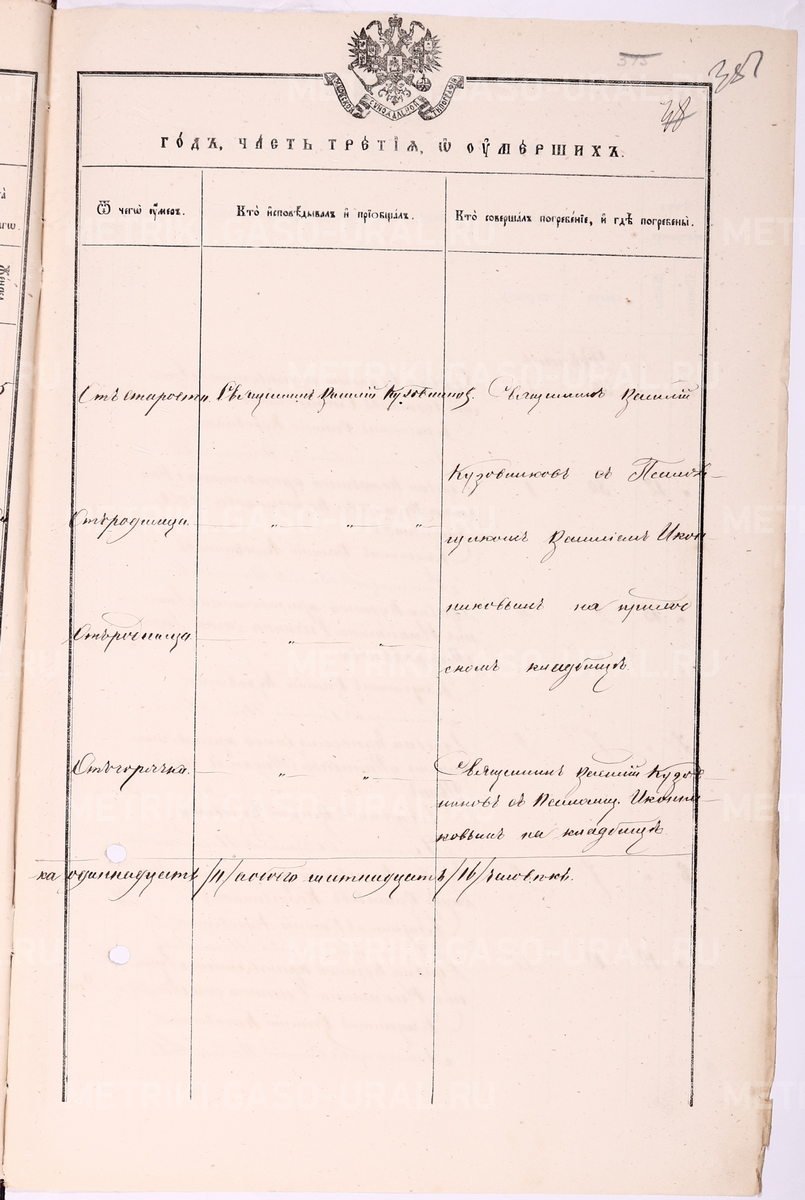 375
387
38
ГО́ДЪ, ЧА́СТЬ ТРЕ́ТІѦ, Ѡ҆ ОУ҆МЕ́РШИХЪ.
Ѿ чегѡ̀ оу҆́меръ.
Кто̀ и҆сповѣ́дывалъ и҆ прїѡбща́лъ.
Кто̀ соверша́лъ погребе́нїе, и҆ гдѣ̀ погребены̀.
Отъ старости
Священникъ Василій Кузовников.
Священникъ Василій
Кузовниковъ съ Псалом-
щикомъ Василіемъ Икон
никовымъ на приход
скомъ кладбищѣ.
Отъ родимца
„ „ „
Отъ родимца
„ „
Отъ горячки.
„ „
Священникъ Василій Кузов
никовъ съ Псаломщ. Иконни-
ковымъ на кладбищѣ
ка одиннадцать /11/ а обоего шестнадцать /16/ человѣкъ.
METRIKI.GASO-URAL.RU